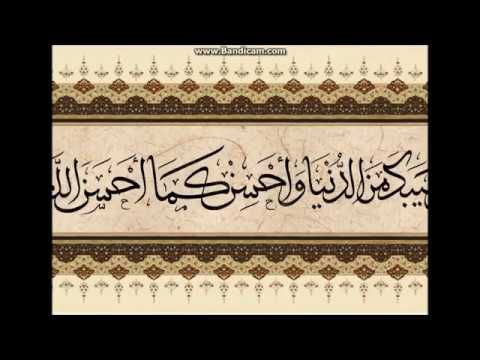 www.Bandicam.com
صيبك من الدُّنْيَا وَأَحْسِنْ كَمَا أَحْسَنَ اللَّه